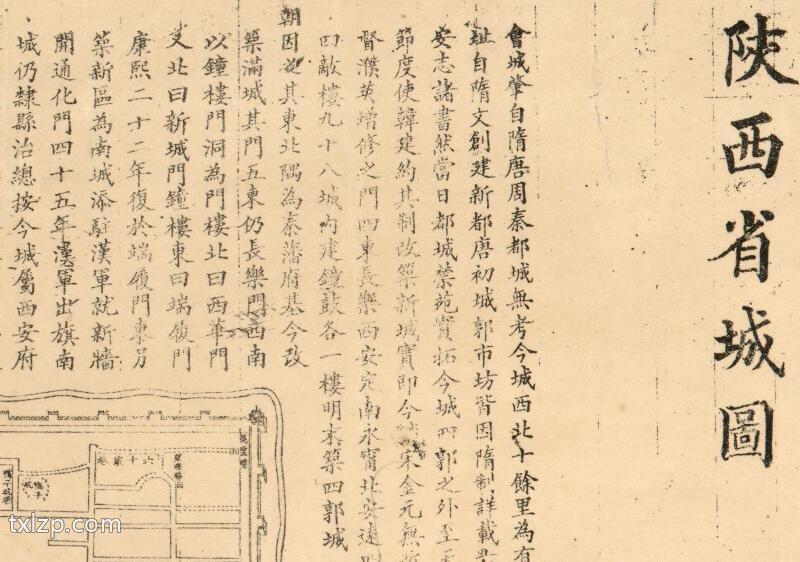 陝西省城圖
會城肇自隋唐周秦都城無考今城西北十餘里為有
址自隋文創建新都唐初城郭市坊皆因隋制詳載
安志諸書然當日都城禁苑實拓今城四郭之外至
節度使韓建約其制改築新城實即今 宋金元無
督濮英增修之門四東長樂西安定南永甯北安遠
四敵樓九十八城內建鐘鼓各一樓明末築四郭城
朝因之其東北隅為秦藩府基今改
築滿城其門五東仍長樂門西南
以鐘樓門洞為門樓北曰西華門
又北曰新城門鐘樓東曰端履門
康熙二十二年復於端履門東另
築新區為南城添駐漢軍就新牆
開通化門四十五年漢軍出旗南
城仍隸縣治總按今城屬西安府
六十家巷
txlzp.com